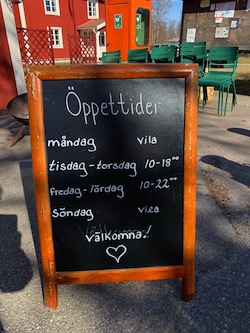 Öppettider
måndag vila
tisdag-torsdag 10-18⁰⁰
fredag-lördag 10-22⁰⁰
Söndag vila
välkomna!